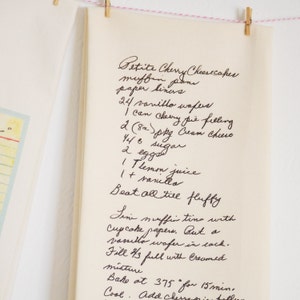 Petite Cherry Cheesecakes
muffin pans
paper liners
24 vanilla wafers
1 can cherry pie filling
2 (8oz) pkg cream cheese
3/4 c sugar
2 eggs
1 T lemon juice
1 t vanilla
Beat all till fluffy
Line muffin tins with
cupcake papers. Put a
vanilla wafer in each.
Fill 2/3 full with creamed
mixture
Bake at 375° for 15 min.
Cool. Add cherry pie filling